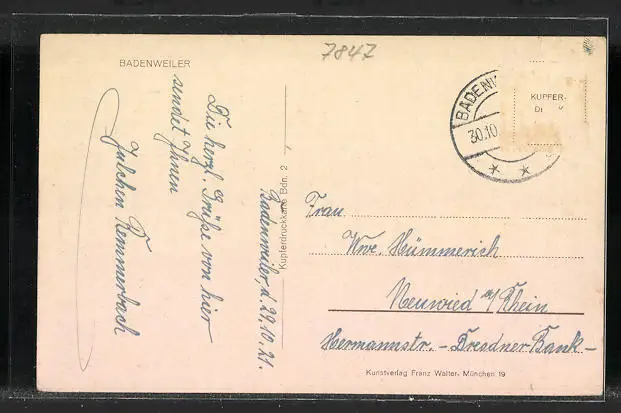 7847
BADENWEILER
Badenweiler, d. 29.10.21.
Die herzl. Grüße von hier
sendet Ihnen
Julchen Remmerbach
Kupferdruckkarte Bdn. 2
BADENW
30.10.
KUPFER-
Frau
Wwe. Hümmerich
Neuwied a/Rhein
Hermannstr. - Dresdner Bank -
Kunstverlag Franz Walter, München 19